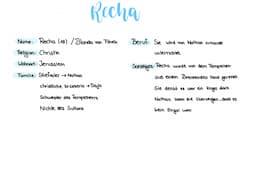 Recha
Name: Recha (18) / Blanda von Filnek
Religion: Christin
Wohnort: Jerusalem
Familie: Stiefvater → Nathan
christliche Erzieherin → Daja
Schwester des Tempelherrn
Nichte des Sultans
Beruf: Sie wird von Nathan zuhause
unterrichtet
Sonstiges: Recha wurde von dem Tempelherrn
aus einem brennenden Haus gerettet
Sie denkt es war ein Engel doch
Nathan kann sie überzeugen, dass es
kein Engel war